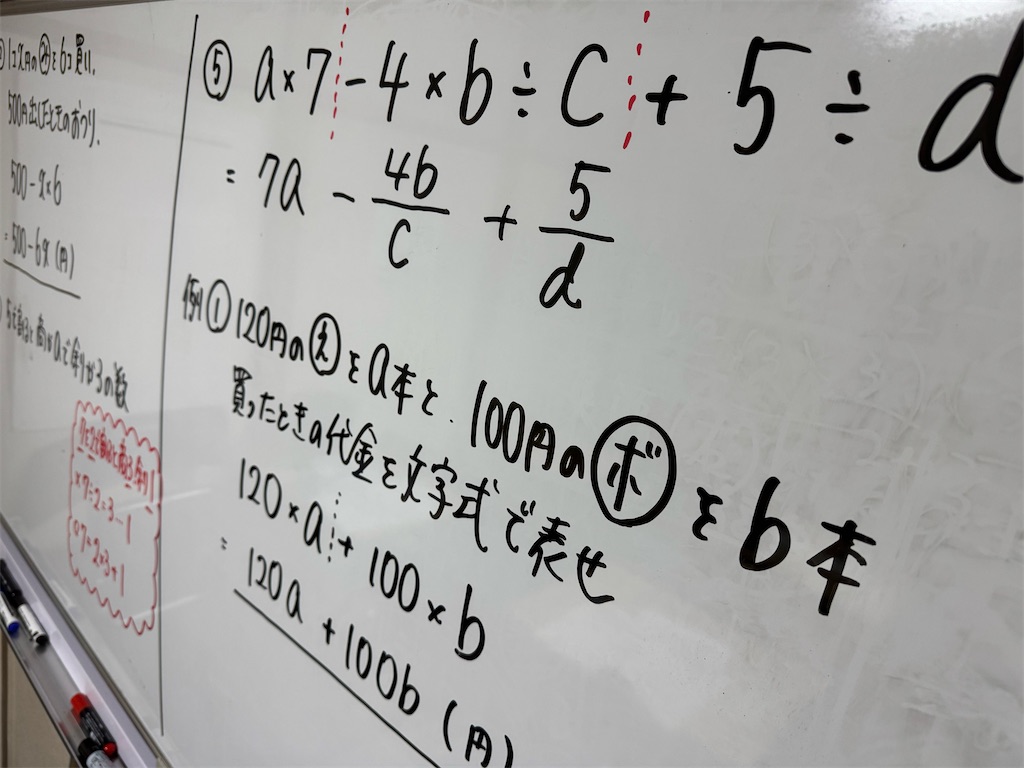 1コx円の㋔を6コ買い、
500円出したときのおつり、
500-x×6
=500-6x(円)
5で割ると商がaで余りが3の数
7を2で割ると商3余り1
×7÷2=3-1
○7=2×3+1
⑤ a×7-4×b÷c+5÷d
=7a-4b/c+5/d
例① 120円の㋓をa本と、100円の㋭゙をb本
買ったときの代金を文字式で表せ
120×a+100×b
=120a+100b(円)